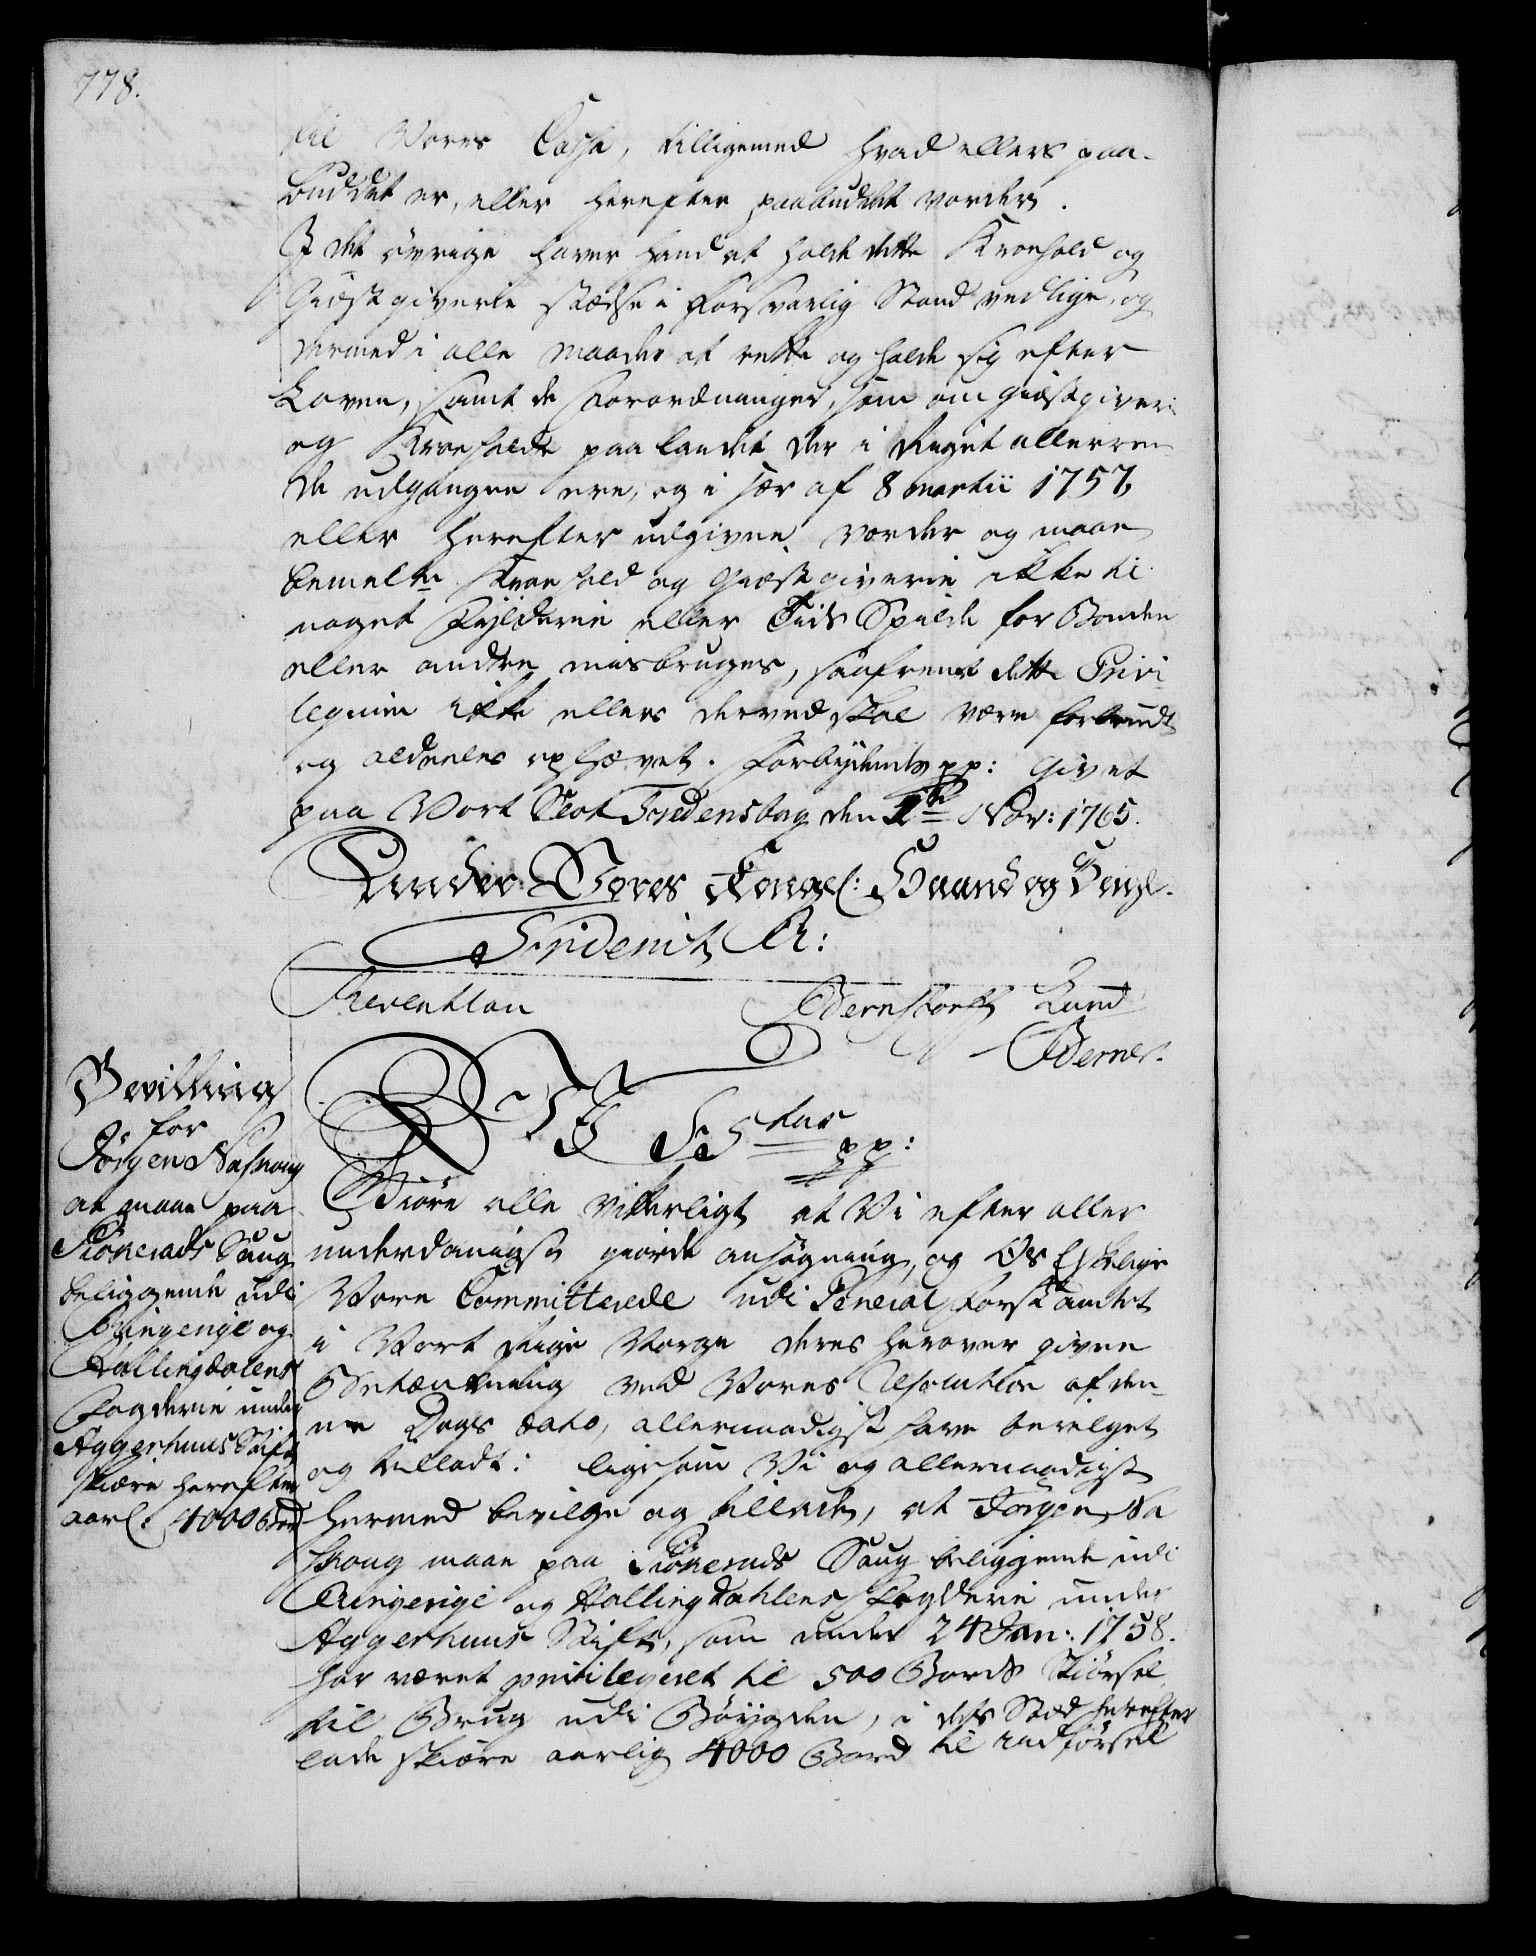 778.
til Vores Cassa, tilligemed hvad ellers paa-
buddet er, eller herefter paabudet vorder.
I det övrige haver hand at holde dette Kroehold og
Giæstgiverie stedse i forsvarlig Stand vedlige, og
dermed i alle maader at rette og holde sig efter
Loven, samt de Forordninger, som om giæstgiveri
og Kroehold paa landet der i Riget alleree-
de udgangne ere, og i sær af 8 martii 1757,
eller herefter udgivne vorder og maae
bemelte Kroehold og Giæstgiverie ikke til
noget Fylderie eller Tids Spilde for Bonden
eller andre misbruges, saafremt dette Privi-
legium ikke ellers derved skal være forbrudt
og aldeeles ophævet. Forbydende pp: Givet
paa Vort Slot Fredensborg den 1te Nov: 1765.
Under Vores Kongel: Haand og Seigl.
Friderich R:
Reventlau
Bernstorff Lund
Berner.
Bevilling
for
Jörgen NasKoug
at maae paa
Kiönerads Saug
beliggende udi
Ringerige og
Hallingdalens
Fogderie under
Aggerhuus Stift
skiære herefter
aarl: 4000 bord
Wi F 5tus pp:
Giöre alle vitterligt at Vi efter aller
underdanigst giorde ansögning, og Os Elskelige
Vore Committerede udi General Forst Amtet
i Vort Rige Norge deres herover givne
Betænkning ved Vores Resolution af den-
ne Dags dato, allernaadigst have bevilget
og tilladt: ligesom Vi og allernaadigst
hermed bevilge og tillade, at Jörgen Na
skoug maae paa Kiönerads Saug beliggende udi
Ringerige og Hallingdahlens Fogderie under
Aggerhuus Stift, som under 24 Jan: 1758.
har været privilegeret til 500 Bords Skiörsel
til Brug udi Böygden, i dets Sted herefter
lade skiære aarlig 4000 Bord til udförsel